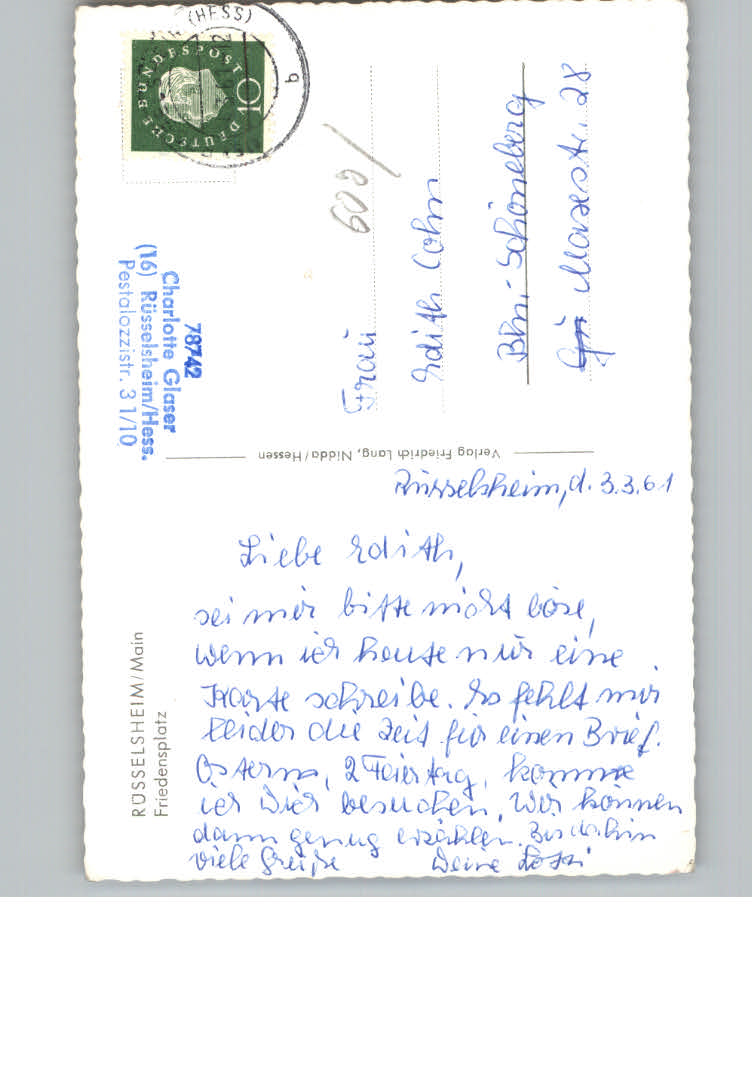 (HESS)
DEUTSCHE BUNDESPOST
DEUTSCHE
10
q
609/
78742
Charlotte Glaser
(16) Rüsselsheim/Hess.
Pestalozzistr. 31/10
Frau
Edith Cohn
Bln.-Schöneberg
Maxstr. 28
Verlag Friedrich Lang, Nidda/Hessen
RÜSSELSHEIM/Main
Friedensplatz
Rüsselsheim, d. 3.3.61
Liebe Edith,
sei mir bitte nicht böse,
wenn ich heute nur eine
Karte schreibe. Es fehlt mir
leider die Zeit für einen Brief.
Ostern, 2 Feiertag, komme
ich Dich besuchen. Wir können
dann genug erzählen. Bis dahin
viele Grüße Deine Lotti